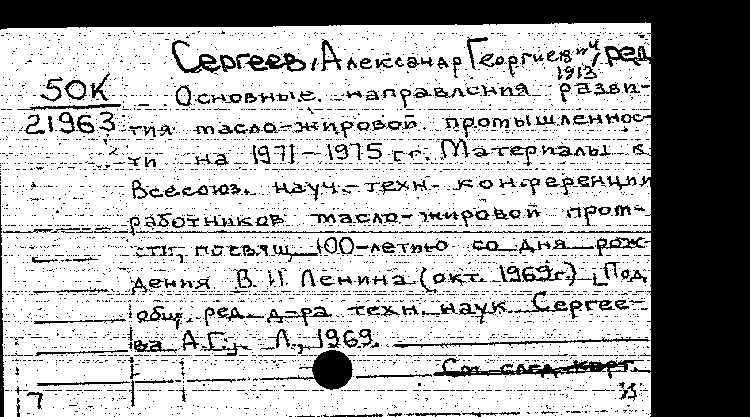 Сергеев, Александр Георгиевич, ред.
1913
50К
21963
Основные направления разви-
тия масло-жировой промышленнос-
ти на 1971-1975 гг. Материалы к
Всесоюз. науч.-техн. конференции
работников масло-жировой пром-
сти, посвящ. 100-летию со дня рож-
дения В. И Ленина (окт. 1969г.) [Под
общ. ред. д-ра техн. наук Сергее-
ва А.Г., Л., 1969.
См. след. карт.
7